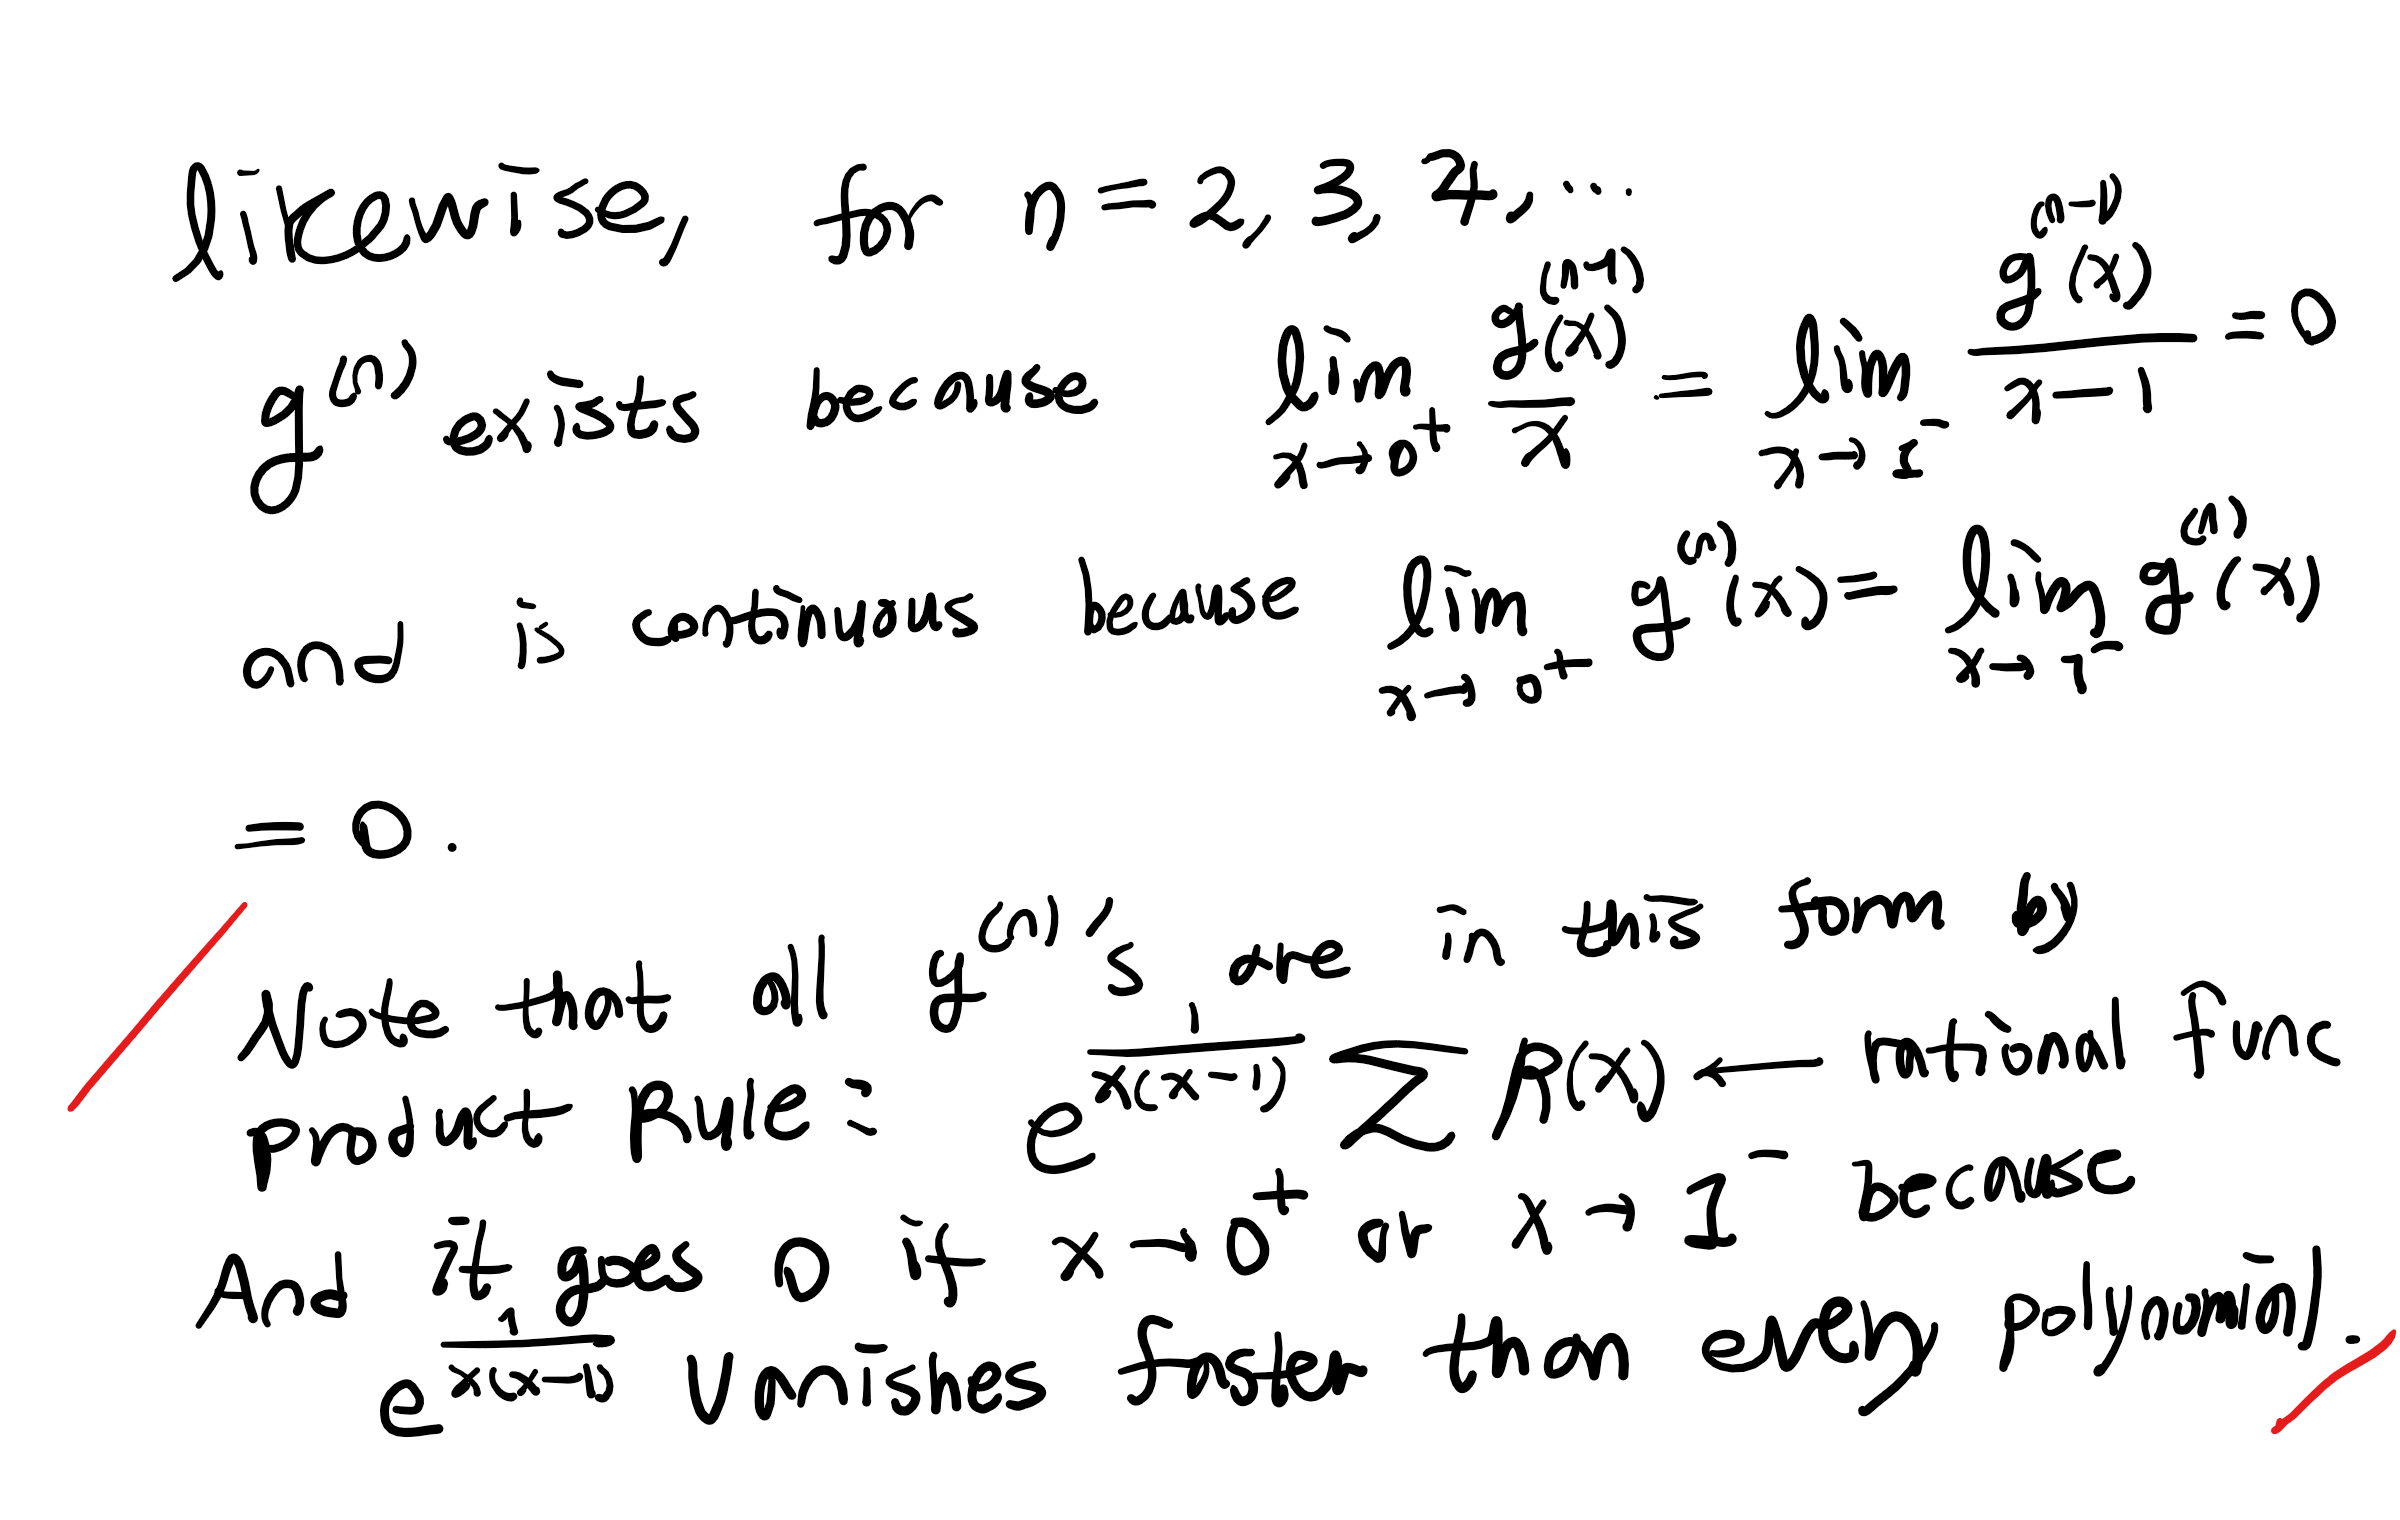 likewise, for n = 2, 3, 4, ...
g^(n) exists because lim_{x→0^+} g^(n-1)(x)/x = lim_{x→1^-} g^(n-1)(x)/(x-1) = 0
and is continuous because lim_{x→0^+} g^(n)(x) = lim_{x→1^-} g^(n)(x)
= 0.
Note that all g^(n)'s are in this form by
product Rule: e^{1/(x(x-1))} Σ R(x) ← rational func
And it goes 0 if x→0^+ or x→1^- because
e^{1/(x(x-1))} vanishes faster than every polynomial.